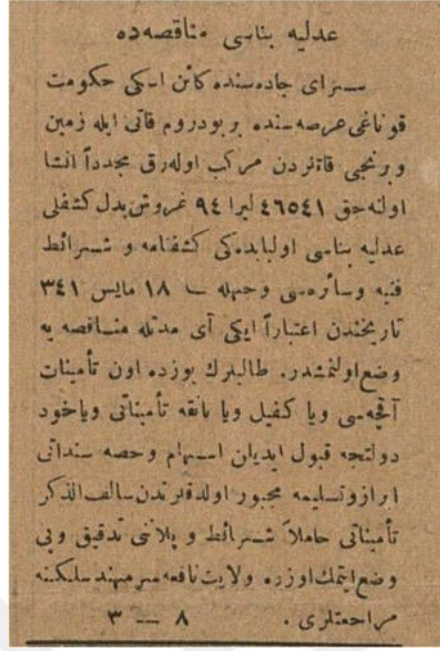 عدلیه بناسی مناقصه‌ده
سرای جاده‌سنده کائن اسکی حکومت
قوناغی عرصه‌سنده بر بودروم قاتی ایله زمین
وبرنجی قاتردن مرکب اوله‌رق مجدداً انشا
اولنه‌جق ٤٦٥٤١ لیرا ٩٤ غروش بدل کشفلی
عدلیه بناسی اولبابده‌کی کشفنامه و شرائط
فنیه وسائره‌سی وجهله ١٨ مایس ٣٤١
تاریخندن اعتباراً ایکی آی مدتله مناقصه یه
وضع اولنمشدر. طالبلرك یوزده اون تأمینات
آقچه‌سی ویا کفیل ویا بانقه تأمیناتی ویاخود
دولتجه قبول ایدیلن اسهام وحصه سنداتی
ابراز وتسلیمه مجبور اولدقلرندن سالف الذکر
تأمیناتی حاملاً شرائط و پلاننی تدقیق وپی
وضع ایتمك اوزره ولایت نافعه سرمهندسلکنه
مراجعتلری . ٨ — ٣